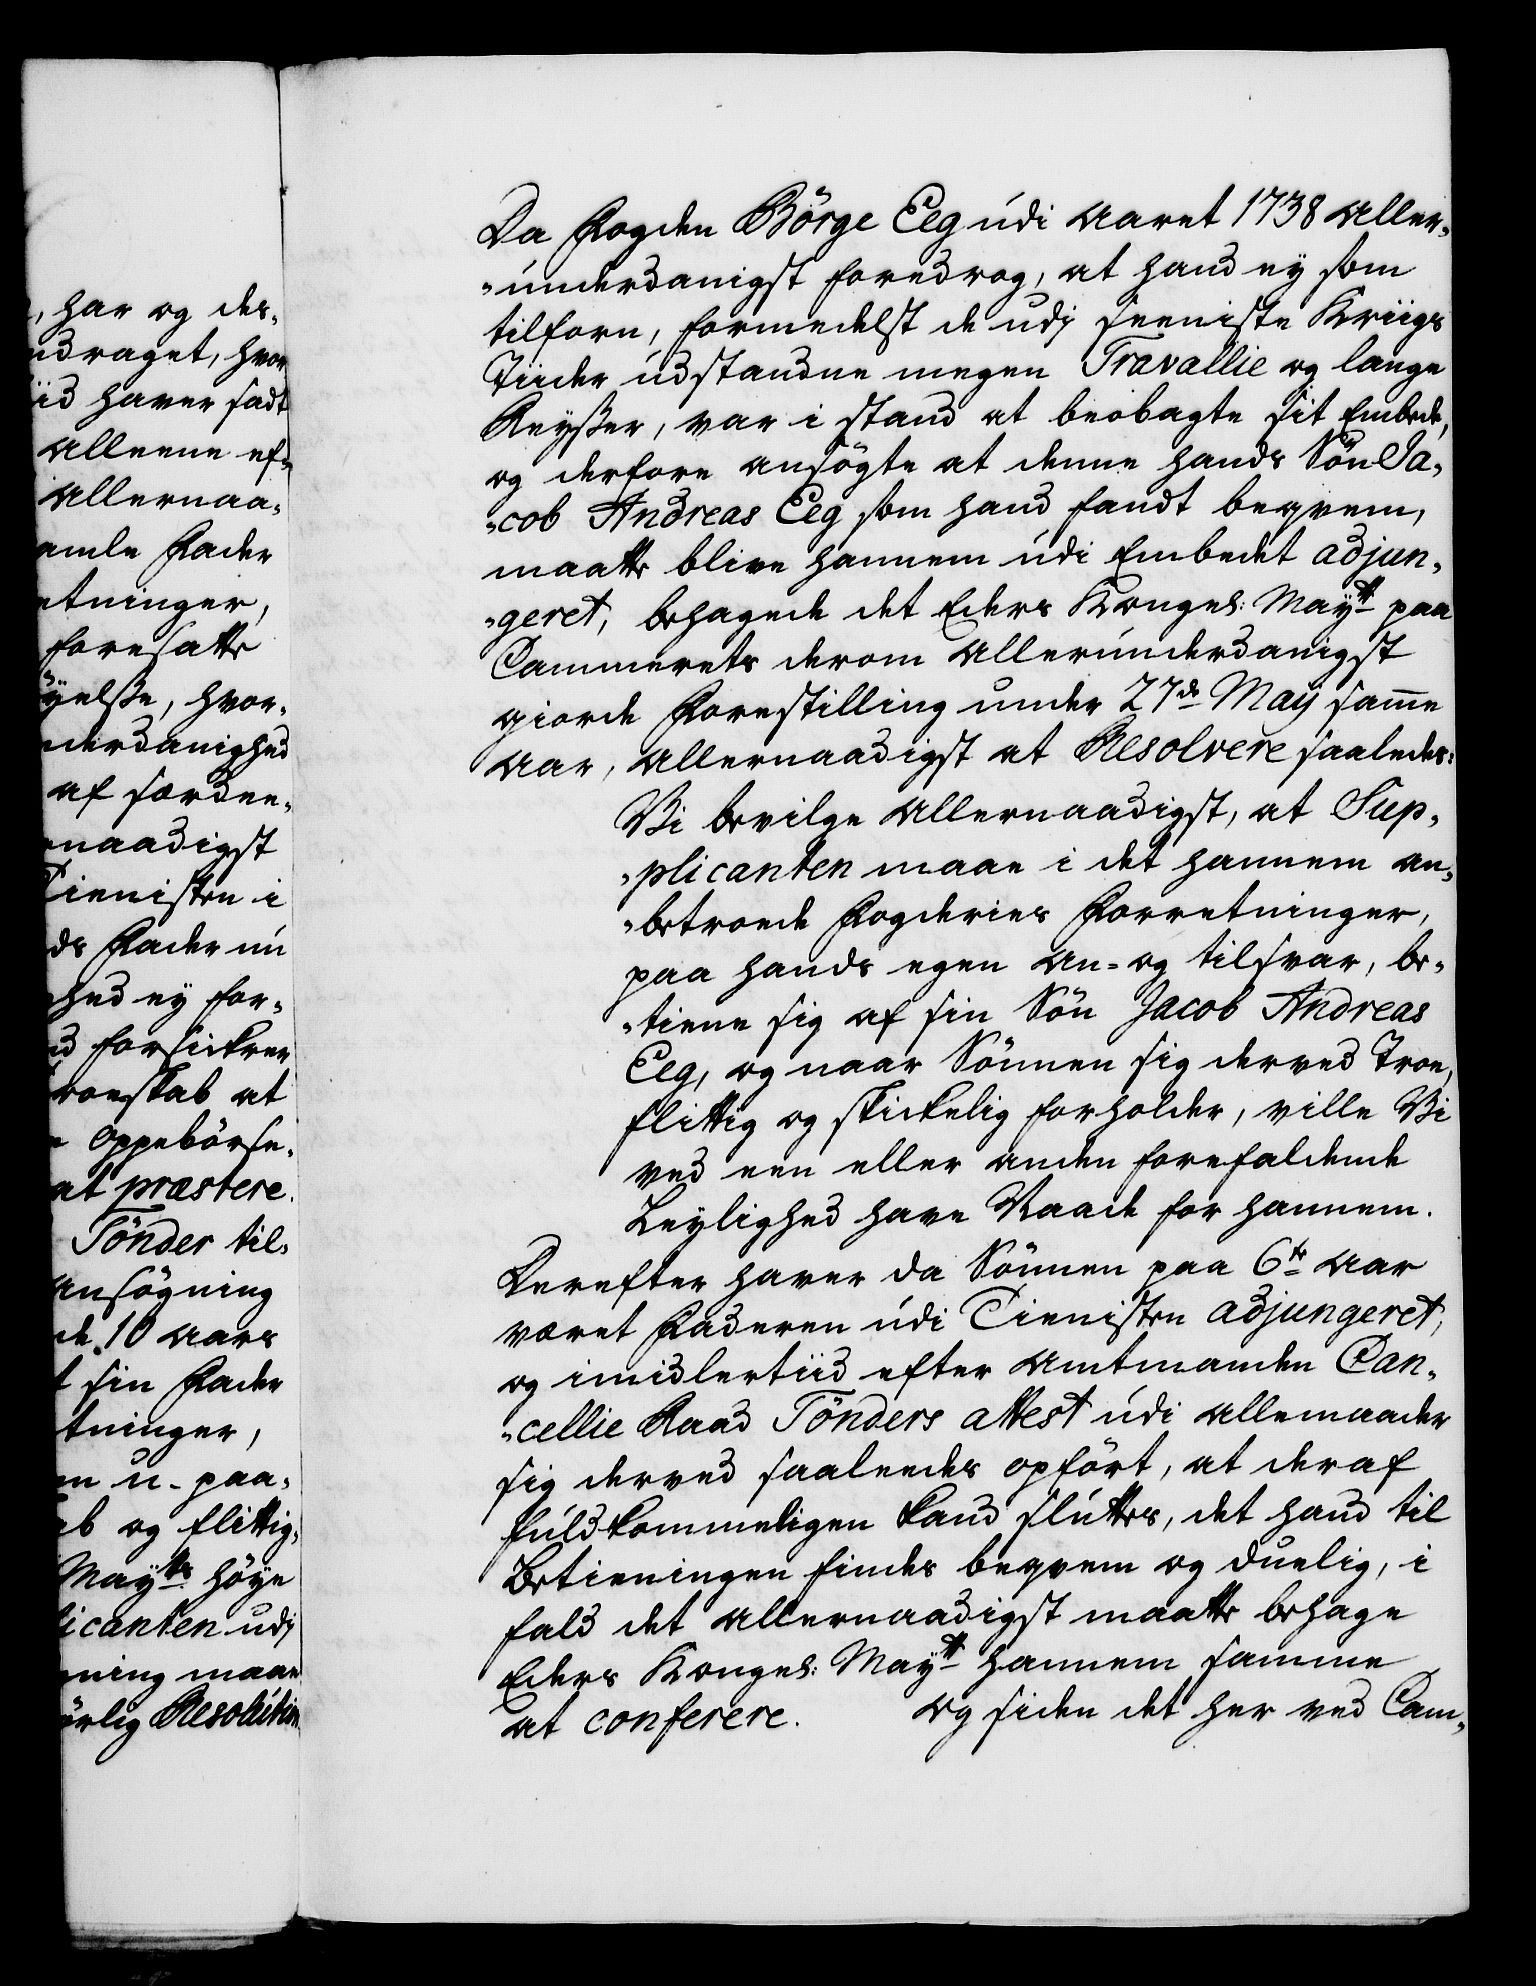 , har og des-
ndraget, hvor
iid haver sadt
Alleene ef-
Allernaa-
amle Fader
etninger,
foresatte
öyelse, hvor-
nderdanighed
af særdee-
rnaadigst
Tienisten i
ds Fader nú
ghed ey for-
d forsickrer
roeskab at
e Oppebörse-
at præstere.
Tönder til-
Ansögning
de 10 Aars
t sin Fader
tninger,
en u-paa-
ab og flittig-
Mayts höye
licanten udj
ning maae
örlig Resolution
Da Fogden Börge Eeg údi Aaret 1738 Aller-
-únderdanigst foredrog, at hand ey som
tilforn, formedelst de udj seeniste Kriigs
Tiider údstandne megen Travallie og lange
Reyßer, var i stand at beobagte sit Embede,
og derfore ansögte at denne hands Sön Ja-
-cob Andreas Eeg som hand fandt beqvem,
maatte blive hannem údi Embedet adjun-
-geret, behagede det Eders Kongel: Mayt paa
Cammerets derom Allerúnderdanigst
giorde Forestilling under 27de Maÿ sam̄e
Aar, Allernaadigst at Resolvere saaledes:
Vi bevilge Allernaadigst, at Sup-
-plicanten maae i det hannem an-
-betroede Fogderies Forretninger,
paa hands egen An- og tilsvar, be-
-tiene sig af sin Sön Jacob Andreas
Eeg, og naar Sönnen sig derved Troe,
flittig og skickelig forholder, ville Vi
ved een eller anden forefaldende
Leylighed have Naade for hannem.
Derefter haver da Sönnen paa 6te Aar
været Faderen údi Tienisten adjungeret,
og imidlertiid efter Amtmanden Can-
-cellie Raad Tönders attest údi Allemaader
sig derved saaleedes opfört, at deraf
fúldkommeligen kand slúttes, det hand til
Betieningen findes beqvem og duelig, i
fald det Allernaadigst maatte behage
Eders Kongel: Mayt hannem samme
at conferere. Og siden det her ved Cam-